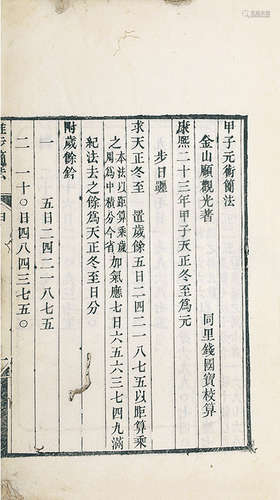 甲子元術簡法
金山顧觀光著　　同里錢國寶校算
康熙二十三年甲子天正冬至爲元
步日躔
求天正冬至　置歲餘五日二四二一八七五以距算乘
之本法以距算乘歲周爲中積分今省加氣應七日六五六三七四九滿
紀法去之餘爲天正冬至日分
附歲餘鈐
一　五日二四二一八七五
二　一十〇日四八四三七五〇